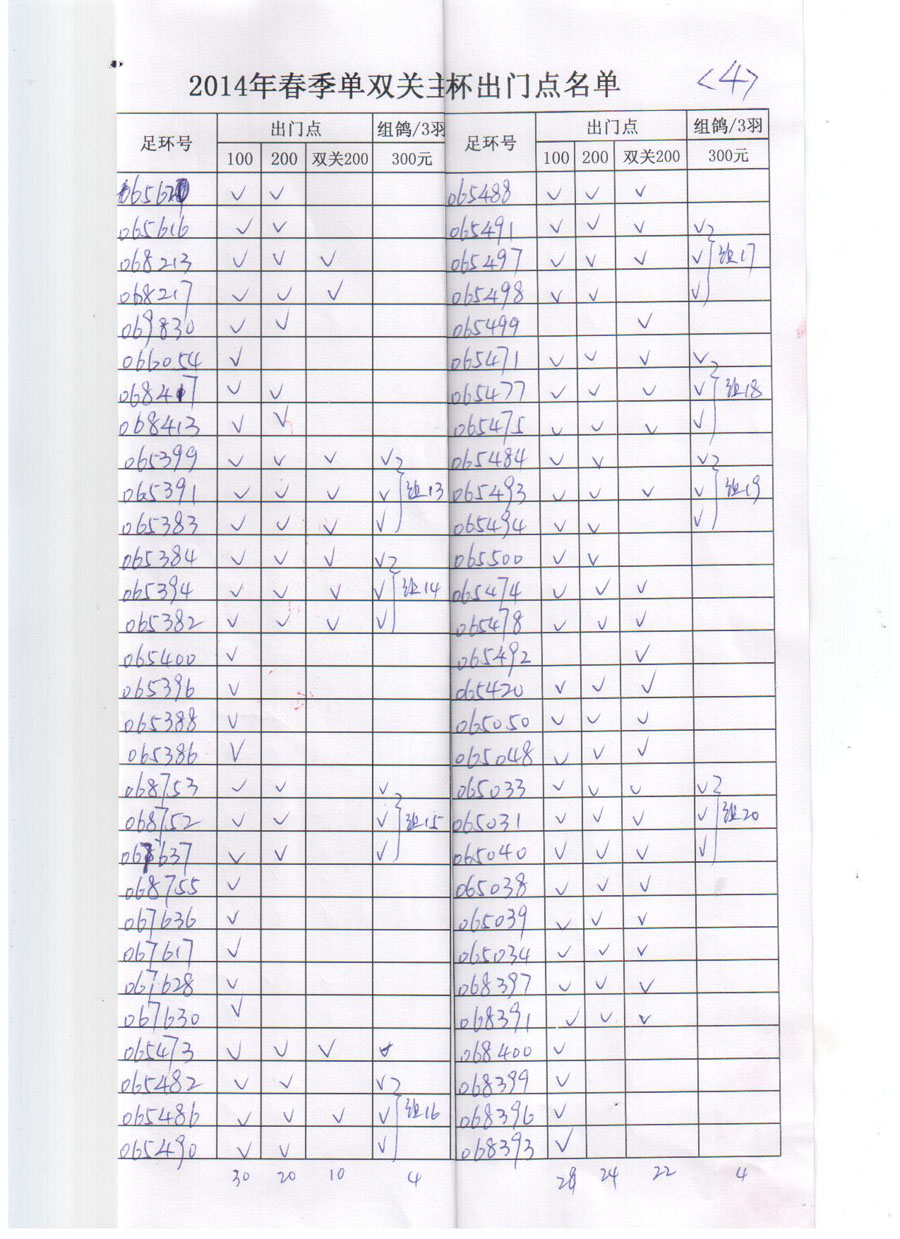 2014年春季单双关主杯出门点名单 <4>
足环号 出门点 组鸽/3羽 足环号 出门点 组鸽/3羽
100 200 双关200 300元 100 200 双关200 300元
✓ ✓ 065488 ✓ ✓ ✓
065616 ✓ ✓ 065491 ✓ ✓ ✓ ✓
068213 ✓ ✓ ✓ 065497 ✓ ✓ ✓ ✓ 组17
068217 ✓ ✓ ✓ 065498 ✓ ✓ ✓
069830 ✓ ✓ 065499 ✓
066054 ✓ 065471 ✓ ✓ ✓ ✓
068417 ✓ ✓ 065477 ✓ ✓ ✓ ✓ 组18
068413 ✓ ✓ 065475 ✓ ✓ ✓ ✓
065399 ✓ ✓ ✓ ✓ 065484 ✓ ✓ ✓
065391 ✓ ✓ ✓ ✓ 组13 065493 ✓ ✓ ✓ ✓ 组19
065383 ✓ ✓ ✓ ✓ 065494 ✓ ✓ ✓
065384 ✓ ✓ ✓ ✓ 065500 ✓ ✓
065394 ✓ ✓ ✓ ✓ 组14 065474 ✓ ✓ ✓
065382 ✓ ✓ ✓ ✓ 065478 ✓ ✓ ✓
065400 ✓ 065492 ✓
065396 ✓ 065420 ✓ ✓ ✓
065388 ✓ 065050 ✓ ✓ ✓
065386 ✓ 065048 ✓ ✓ ✓
068753 ✓ ✓ ✓ 065033 ✓ ✓ ✓ ✓
068752 ✓ ✓ ✓ 组15 065031 ✓ ✓ ✓ ✓ 组20
067637 ✓ ✓ ✓ 065040 ✓ ✓ ✓ ✓
068755 ✓ 065038 ✓ ✓ ✓
067636 ✓ 065039 ✓ ✓ ✓
067617 ✓ 065034 ✓ ✓ ✓
067628 ✓ 068397 ✓ ✓ ✓
067630 ✓ 068391 ✓ ✓ ✓
065473 ✓ ✓ ✓ ✓ 068400 ✓
065482 ✓ ✓ ✓ 068399 ✓
065486 ✓ ✓ ✓ ✓ 组16 068396 ✓
065490 ✓ ✓ ✓ 068393 ✓
30 20 10 4 28 24 22 4